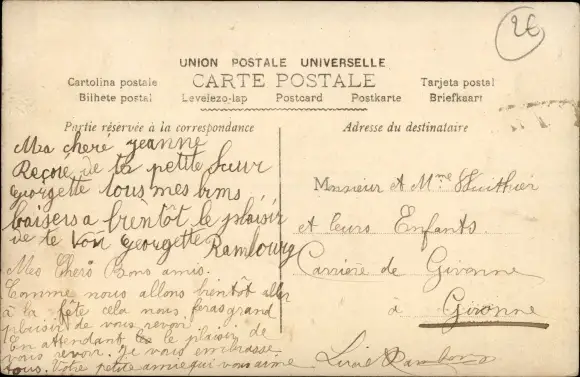 2€
UNION POSTALE UNIVERSELLE
CARTE POSTALE
Cartolina postale
Tarjeta postal
Bilhete postal
Levelezo-lap
Postcard
Postkarte
Briefkaart
Partie réservée à la correspondance
Adresse du destinataire
Ma chere jeanne
Reçoie de ta petite Sœur
georgette tous mes
baisers a bientôt le plaisir
de te voir Georgette Rambourg
Mes Chers Bons amis.
Comme nous allons bientôt aller
à la fête cela nous feras grand
plaisir de vous revoir
En attendant le plaisir de
vous revoir. Je vous embrasse
tous. Votre petite amie qui vous aime
Monsieur et Mme
et leurs Enfants
Carrière de Gironne
à
Gironne